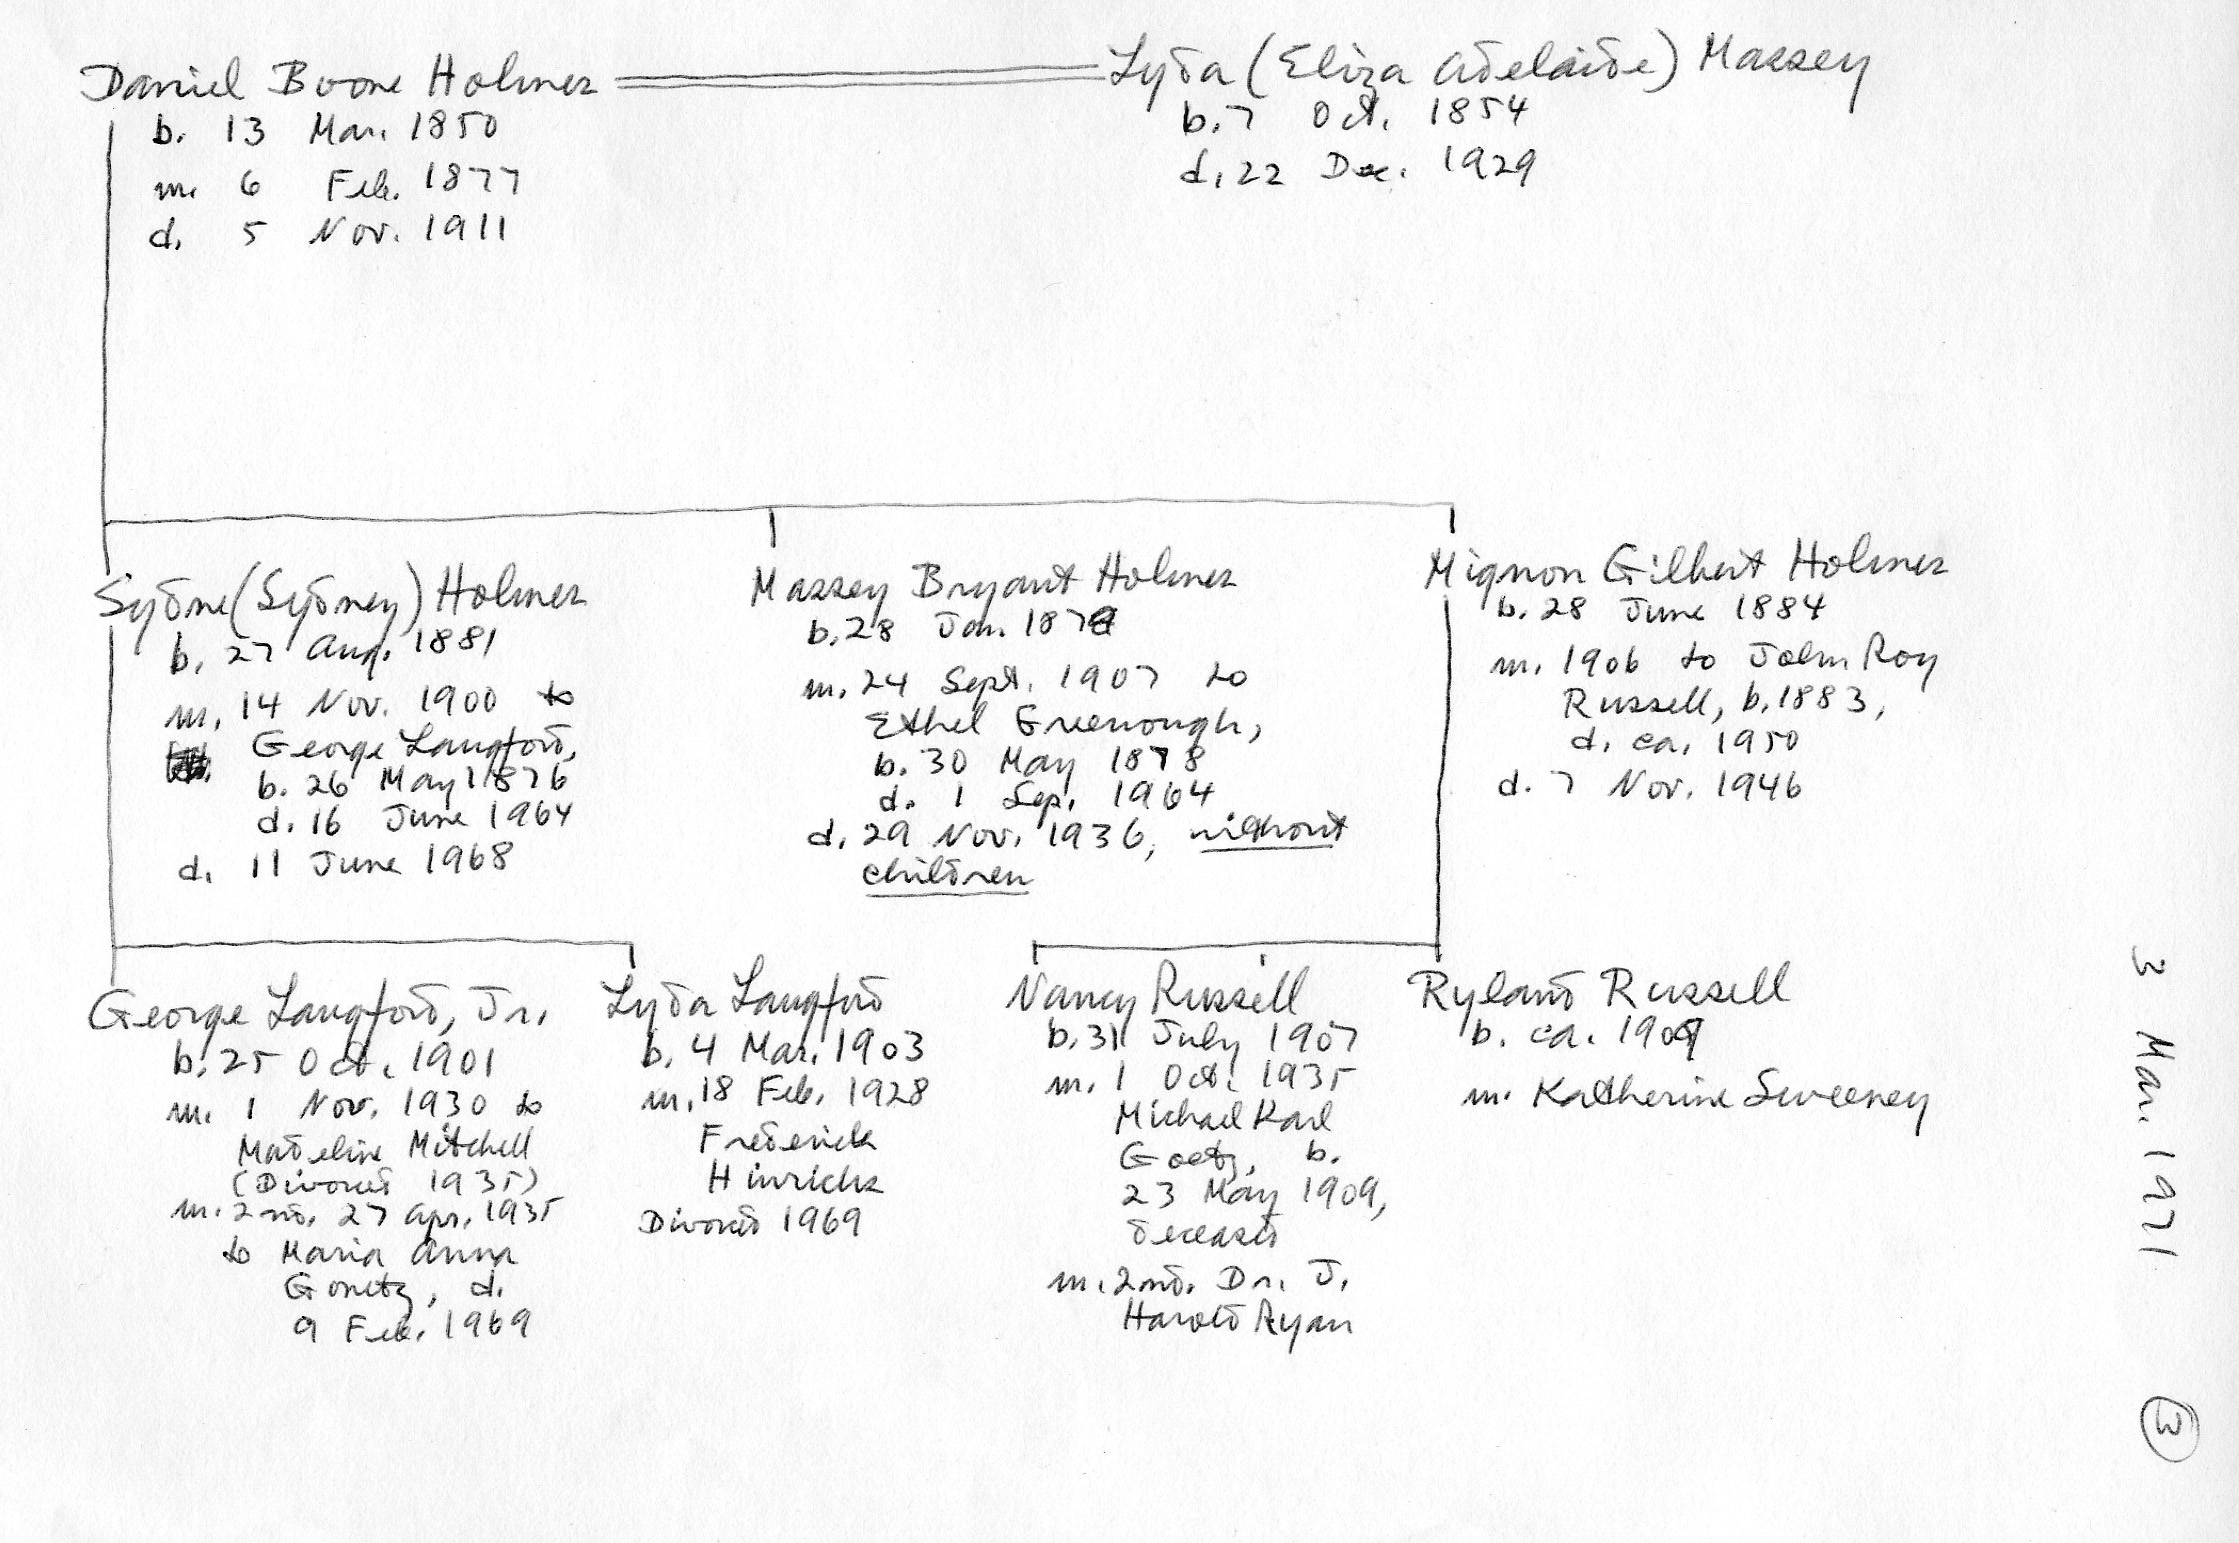 Daniel Boone Holmes
b. 13 Mar. 1850
m. 6 Feb. 1877
d. 5 Nov. 1911
Lyda (Eliza Adelaide) Massey
b. 7 Oct. 1854
d. 22 Dec. 1929
Sydne (Sydney) Holmes
b. 27 Aug. 1881
m. 14 Nov. 1900 to
George Langford,
b. 26 May 1876
d. 16 June 1964
d. 11 June 1968
Massey Bryant Holmes
b. 28 Jan. 1879
m. 24 Sept. 1907 to
Ethel Greenough,
b. 30 May 1878
d. 1 Sep. 1964
d. 29 Nov. 1936, without
children
Mignon Gilbert Holmes
b. 28 June 1884
m. 1906 to John Roy
Russell, b. 1883,
d. ca. 1950
d. 7 Nov. 1946
George Langford, Jr.
b. 25 Oct. 1901
m. 1 Nov. 1930 to
Madeline Mitchell
(Divorced 1935)
m. 2nd. 27 Apr. 1935
to Maria Anna
d.
9 Feb. 1969
Lyda Langford
b. 4 Mar. 1903
m. 18 Feb. 1928
Frederick
Hinrichs
Divorced 1969
Nancy Russell
b. 31 July 1907
m. 1 Oct. 1935
Michael Karl
Goetz, b.
23 May 1909,
deceased
m. 2nd. Dr. J.
Harold Ryan
Ryland Russell
b. ca. 1909
m. Katherine Sweeney
3 Mar. 1971
3